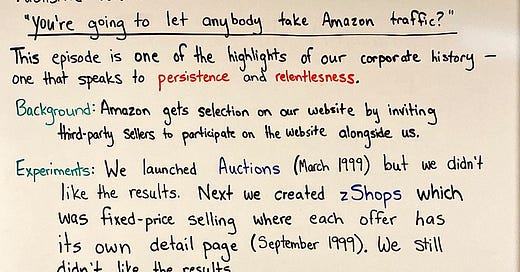 "You're going to let anybody take Amazon traffic?"
This episode is one of the highlights of our corporate history —
one that speaks to persistence and relentlessness.
Background: Amazon gets selection on our website by inviting
third-party sellers to participate on the website alongside us.
Experiments: We launched Auctions (March 1999) but we didn't
like the results. Next we created zShops which
was fixed-price selling where each offer has
its own detail page (September 1999). We still
didn't like the results